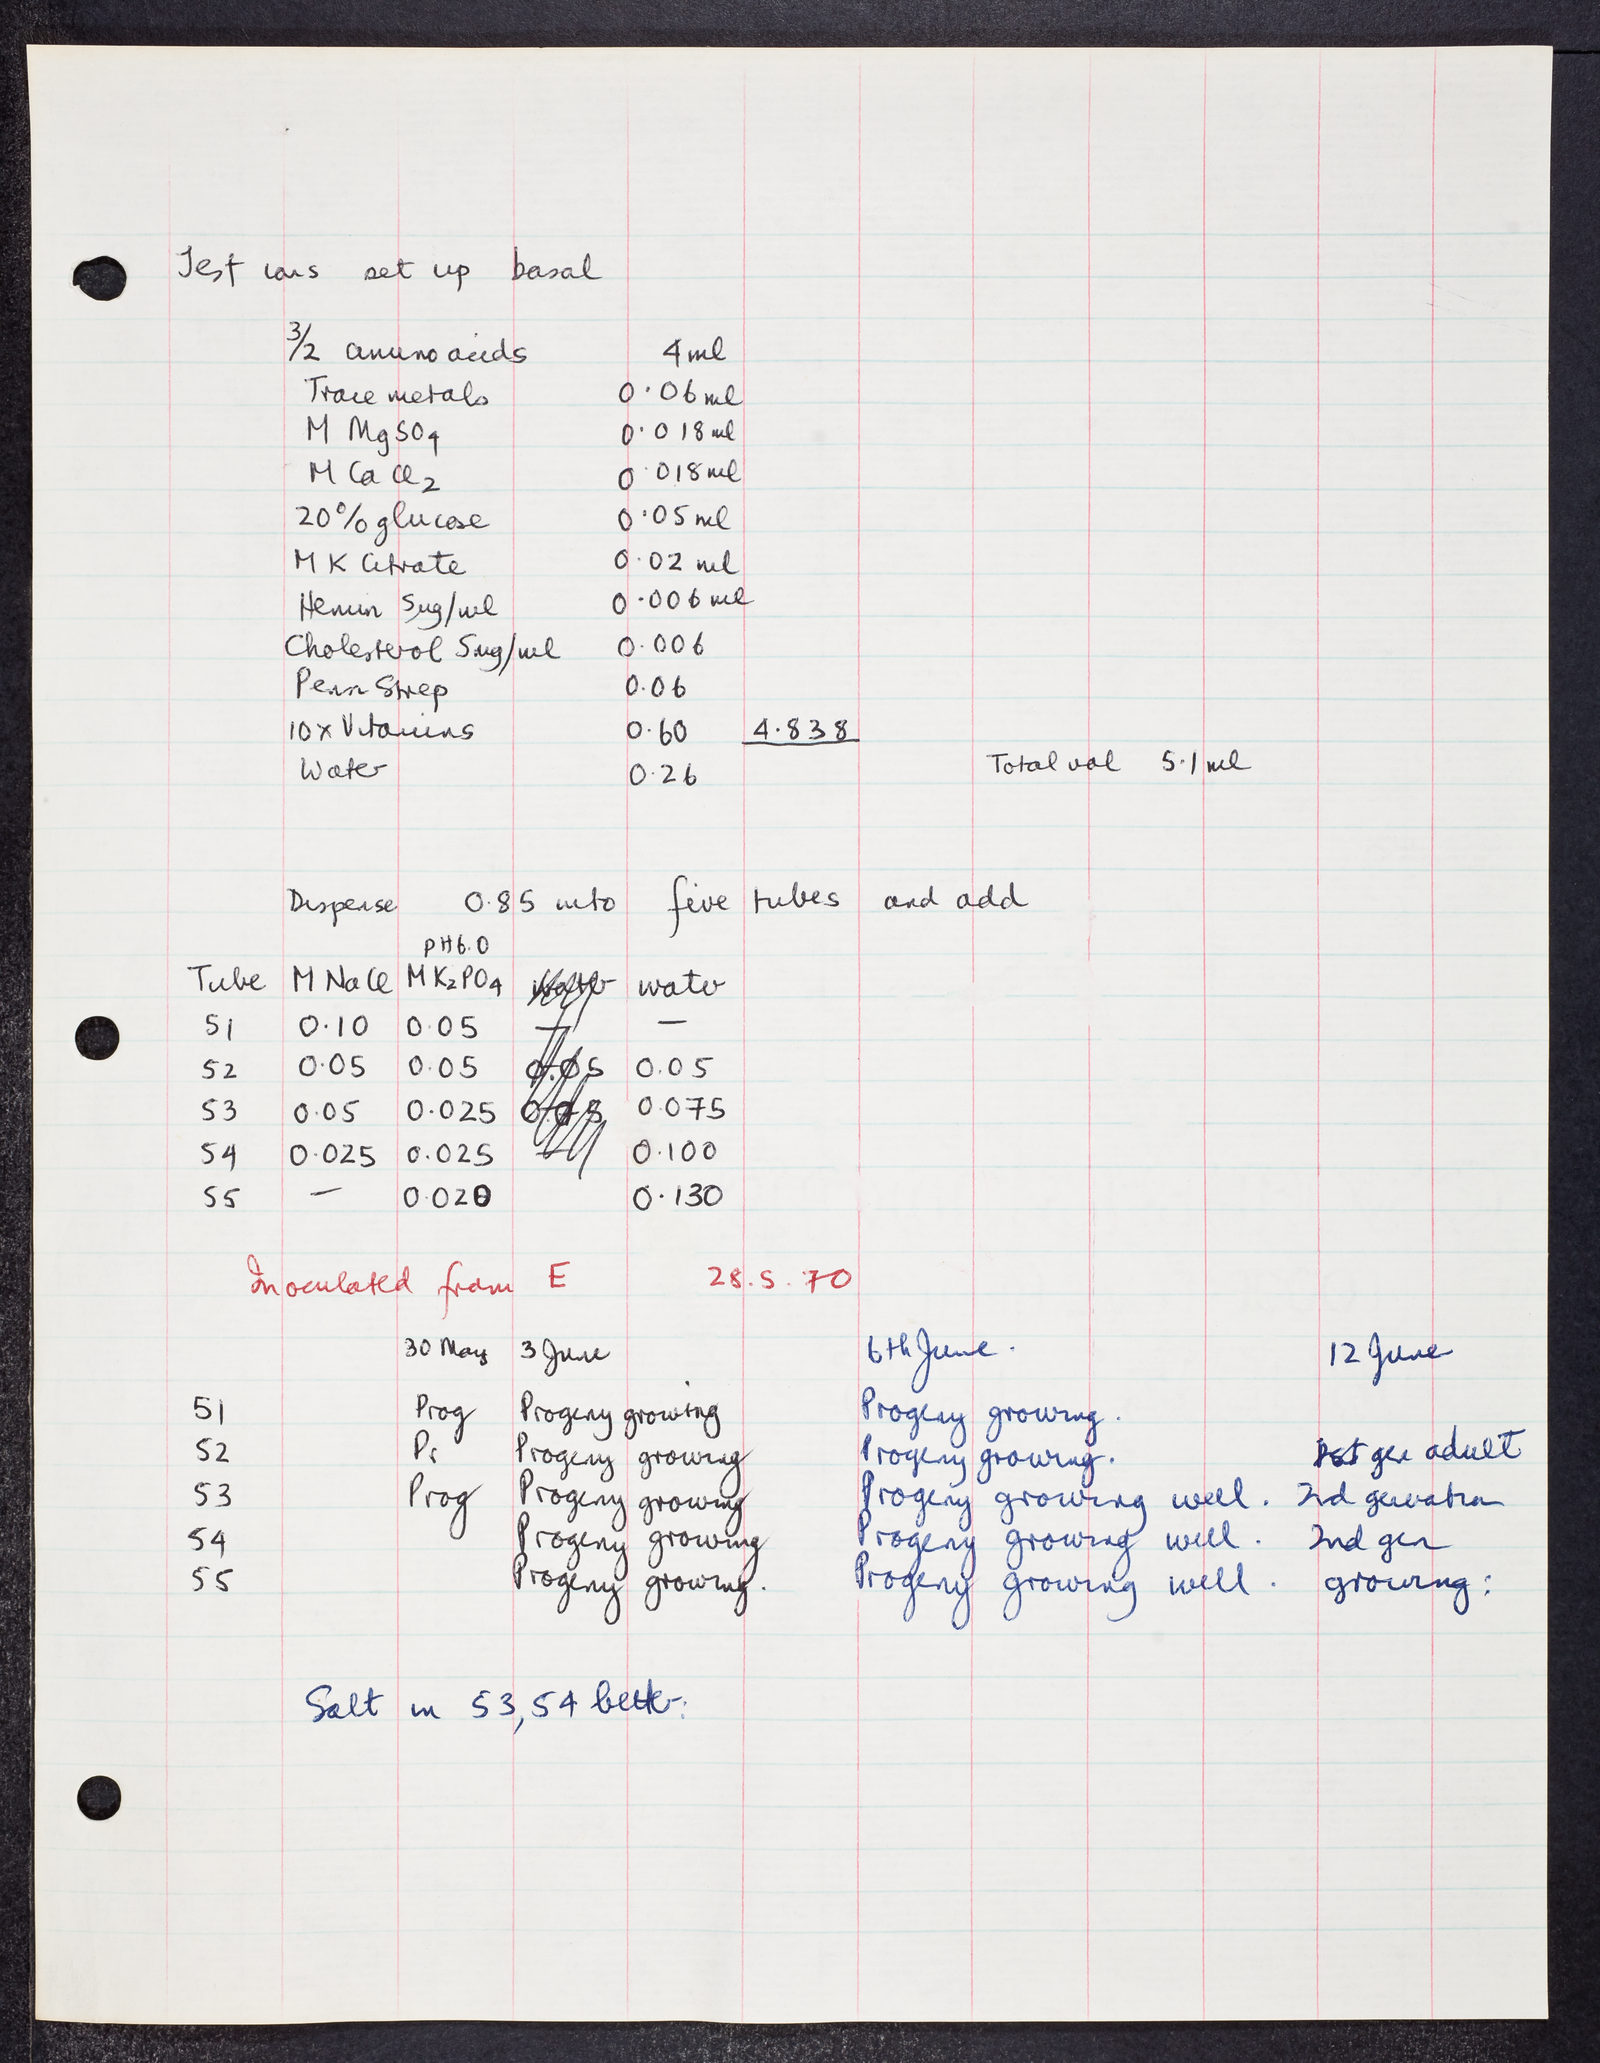 Test ions set up basal
3/2 amino acids 4 ml
Trace metals 0.06 ml
M MgSO4 0.018 ml
M CaCl2 0.018 ml
20% glucose 0.05 ml
M K Citrate 0.02 ml
Hemin 5mg/ml 0.006 ml
Cholesterol 5mg/ml 0.006
Penn Strep 0.06
10x Vitamins 0.60 4.838
Water 0.26 Total vol 5.1 ml
Dispense 0.85 into five tubes and add
pH 6.0
Tube M NaCl M K2PO4 water water
51 0.10 0.05 — —
52 0.05 0.05 0.05 0.05
53 0.05 0.025 0.075
54 0.025 0.025 — 0.100
55 — 0.020 0.130
Inoculated from E 28.5.70
30 May 3 June 6th June. 12 June
51 Prog Progeny growing Progeny growing.
52 Pr Progeny growing Progeny growing. 1st gen adult
53 Prog Progeny growing Progeny growing well. 2nd generation
54 Progeny growing Progeny growing well. 2nd gen
55 Progeny growing. Progeny growing well. growing:
Salt in 53, 54 better: